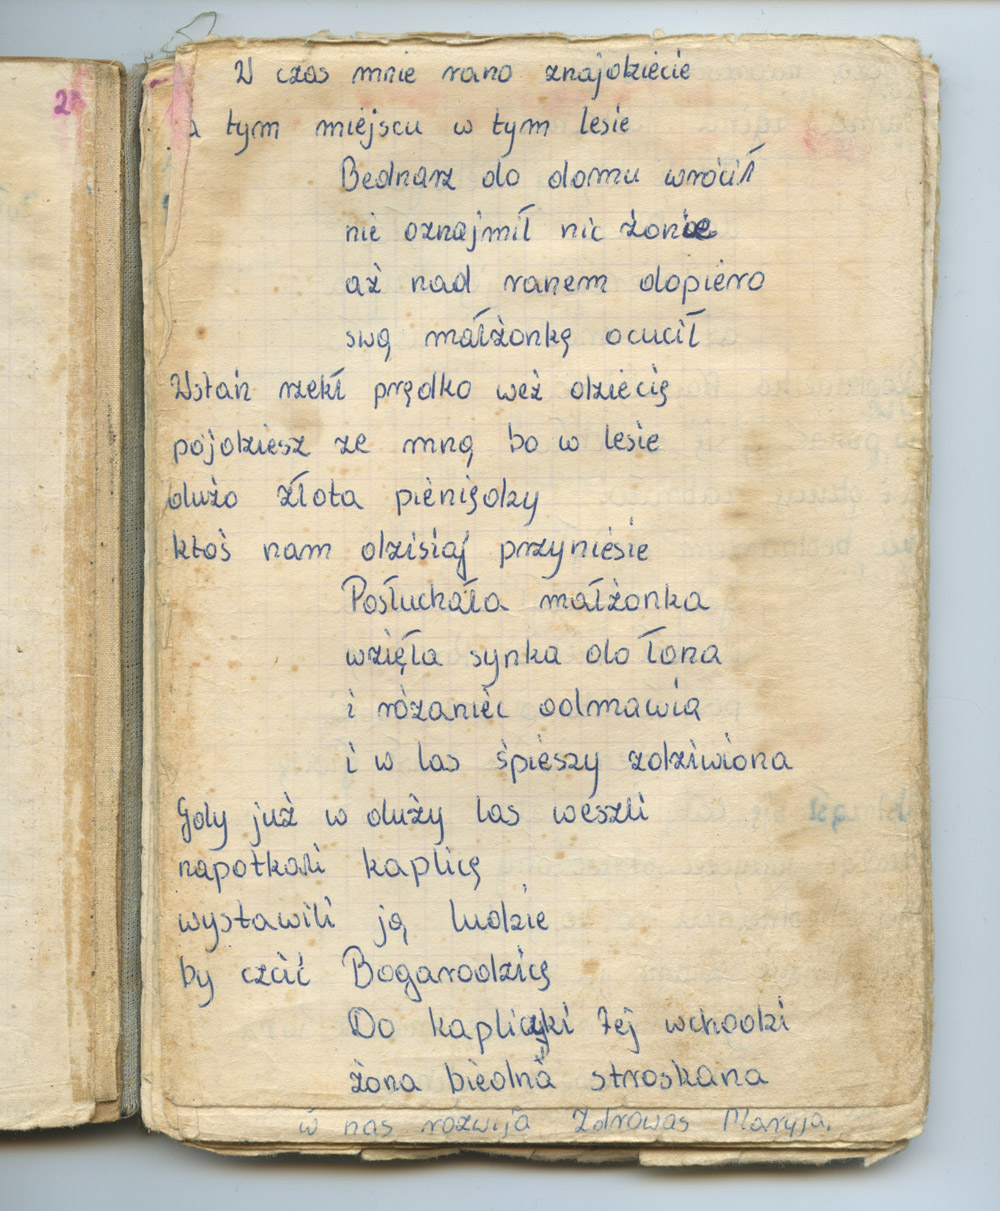 W czas mnie rano znajdziecie
a tym miejscu w tym lesie
Bednarz do domu wrócił
nie oznajmił nic żonie
aż nad ranem dopiero
swą małżonkę ocucił
Wstań rzekł prędko weź dziecię
pójdziesz ze mną bo w lesie
dużo złota pieniędzy
ktoś nam dzisiaj przyniesie
Posłuchała małżonka
wzięła synka do łona
i różaniec odmawia
i w las śpieszy zdziwiona
Gdy już w duży las weszli
napotkali kaplicę
wystawili ją ludzie
by czcić Bogarodzicę
Do kapliczki tej wchodzi
żona biedna stroskana
w nas rozwija Zdrowas Maryja.